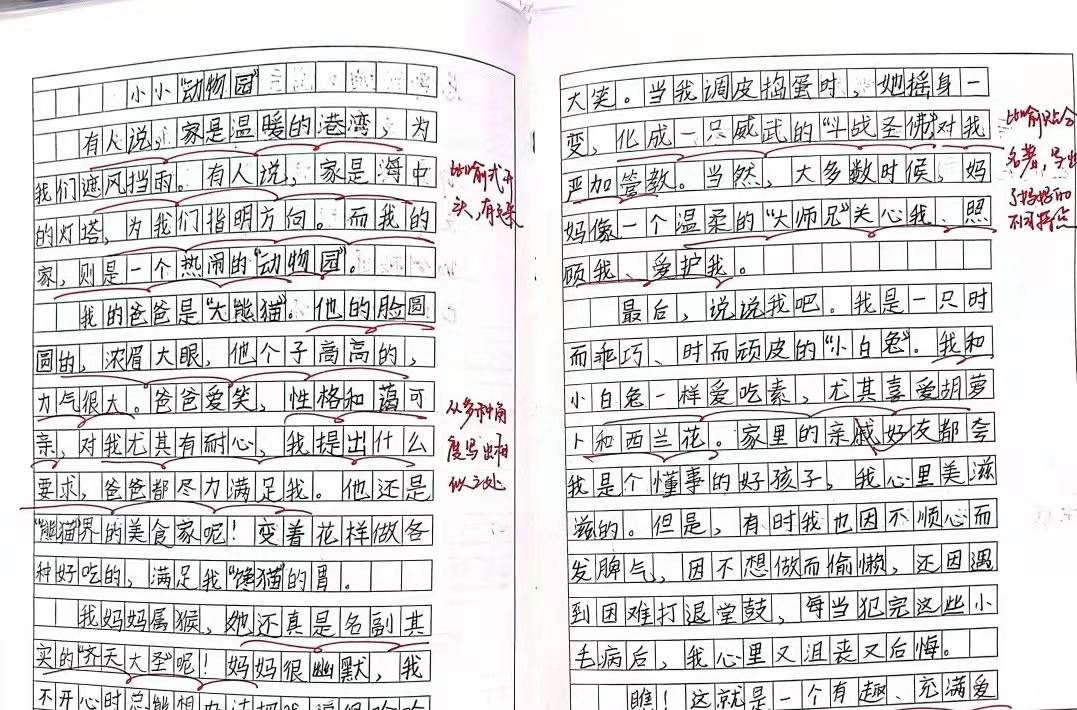 小小“动物园”
有人说，家是温暖的港湾，为
我们遮风挡雨。有人说，家是海中
的灯塔，为我们指明方向。而我的
家，则是一个热闹的“动物园”。
我的爸爸是“大熊猫”。他的脸圆
圆的，浓眉大眼，他个子高高的，
力气很大。爸爸爱笑，性格和蔼可
亲，对我尤其有耐心，我提出什么
要求，爸爸都尽力满足我。他还是
“熊猫”界的美食家呢！变着花样做各
种好吃的，满足我“馋猫”的胃。
我妈妈属猴，她还真是名副其
实的“齐天大圣”呢！妈妈很幽默，我
不开心时总能想办法把我逗得哈哈
比喻式开
头，有文采
从多种角
度写出相
似之处
大笑。当我调皮捣蛋时，她摇身一
变，化成一只威武的“斗战圣佛”对我
严加管教。当然，大多数时候，妈
妈像一个温柔的“大师兄”关心我、照
顾我、爱护我。
最后，说说我吧。我是一只时
而乖巧、时而顽皮的“小白兔”。我和
小白兔一样爱吃素，尤其喜爱胡萝
卜和西兰花。家里的亲戚好友都夸
我是个懂事的好孩子，我心里美滋
滋的。但是，有时我也因不顺心而
发脾气，因不想做而偷懒，还因遇
到困难打退堂鼓，每当犯完这些小
毛病后，我心里又沮丧又后悔。
瞧！这就是一个有趣、充满爱
比喻贴合
名著，写出
了妈妈的
不同特点